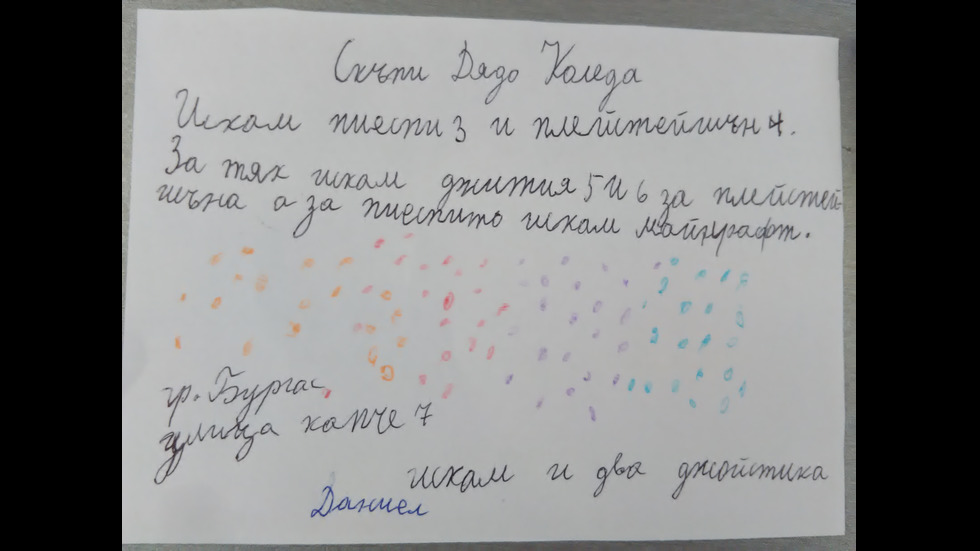 Скъпи Дядо Коледа
Искам пиеспи 3 и плейстейшън 4.
За тях искам джития 5 и 6 за плейстей-
шъна а за пиеспито искам майнрафт.
гр. Бургас,
улица капче 7
искам и два джойстика
Даниел